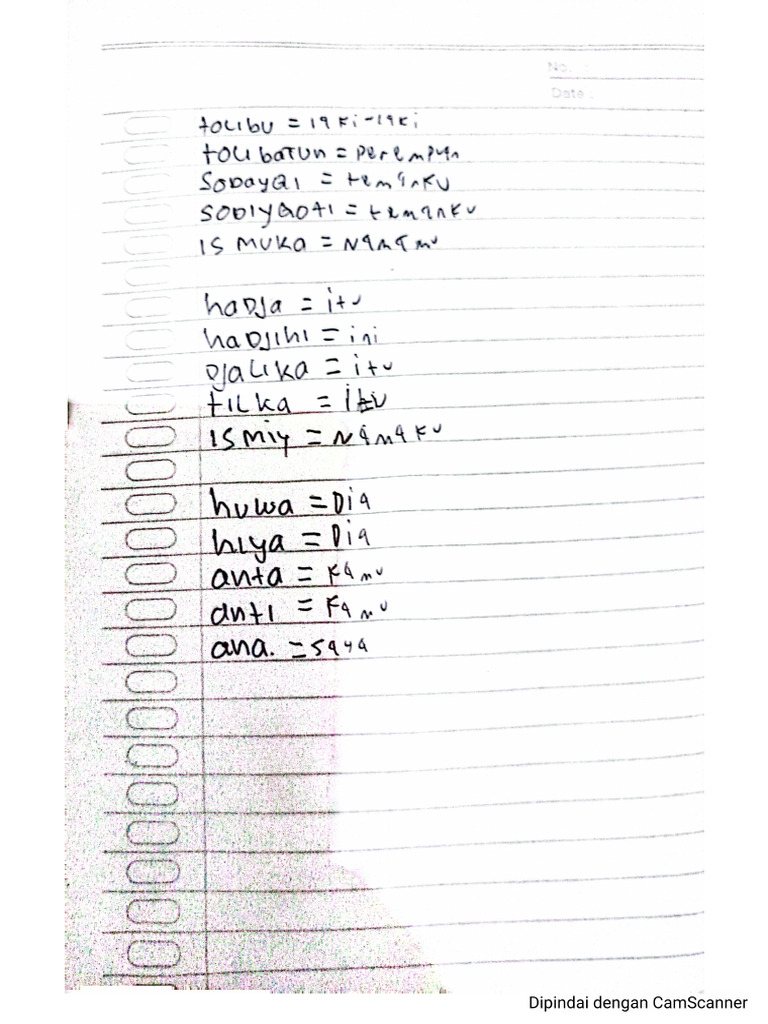 No. :
Date :
tolibu = laki-laki
tolibatun = perempun
Sodayqi = temanku
sodiyqoti = temanku
is muka = Namamu
hadja = itu
hadjihi = ini
Djalika = itu
tilka = itu
ismiy = Namaku
huwa = Dia
hiya = Dia
anta = Kamu
anti = Kamu
ana. = saya
Dipindai dengan CamScanner